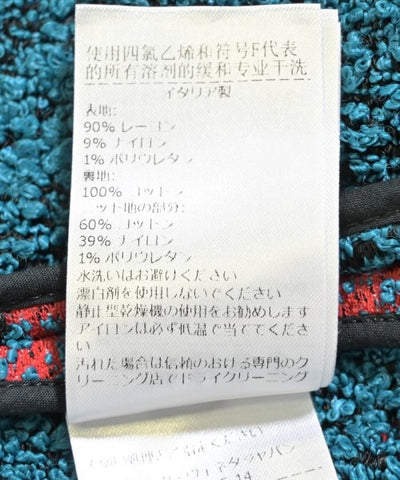 使用四氯乙烯和符号F代表
的所有溶剂的缓和专业干洗
イタリア製
表地:
90% レーヨン
9% ナイロン
1% ポリウレタン
裏地:
100% コットン
ニット地の部分:
60% コットン
39% ナイロン
1% ポリウレタン
水洗いはお避けください
漂白剤を使用しないでください
静止型乾燥機の使用をお勧めします
アイロンは必ず低温で当ててくだ
さい
汚れた場合は信頼のおける専門のク
リーニング店でドライクリーニング
ください
ヴェネタジャパン
14